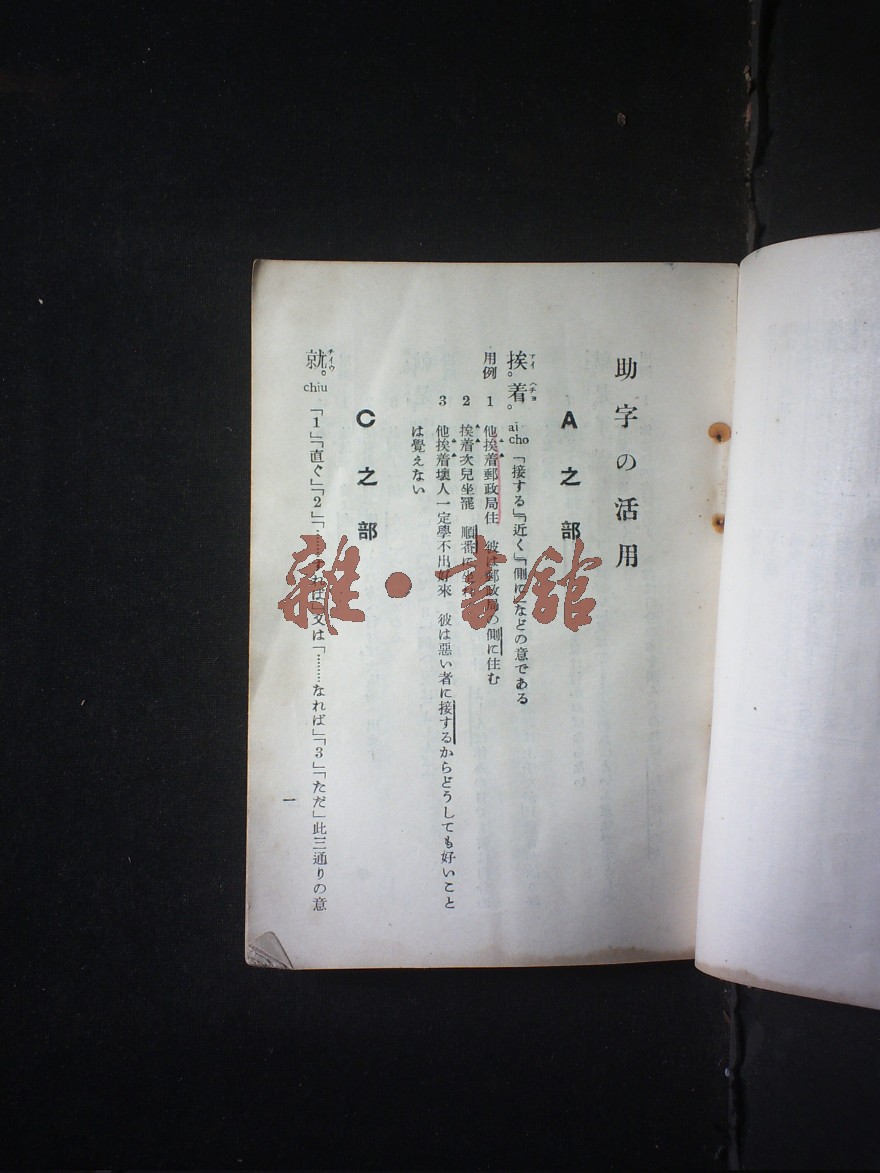 助字の活用
A之部
アイ ヘチヨ
挨。着。 ai cho 「接する」「近く」「側に」などの意である
用例 1 他挨着郵政局住 彼は郵政局の側に住む
2 挨着次兒坐罷 順番に
3 他挨着壞人一定學不出好來 彼は惡い者に接するからどうしても好いこと
は覺えない
C之部
チイウ
就。 chiu 「1」「直ぐ」「2」「……すれば」又は「……なれば」「3」「ただ」此三通りの意
一
雜·書館